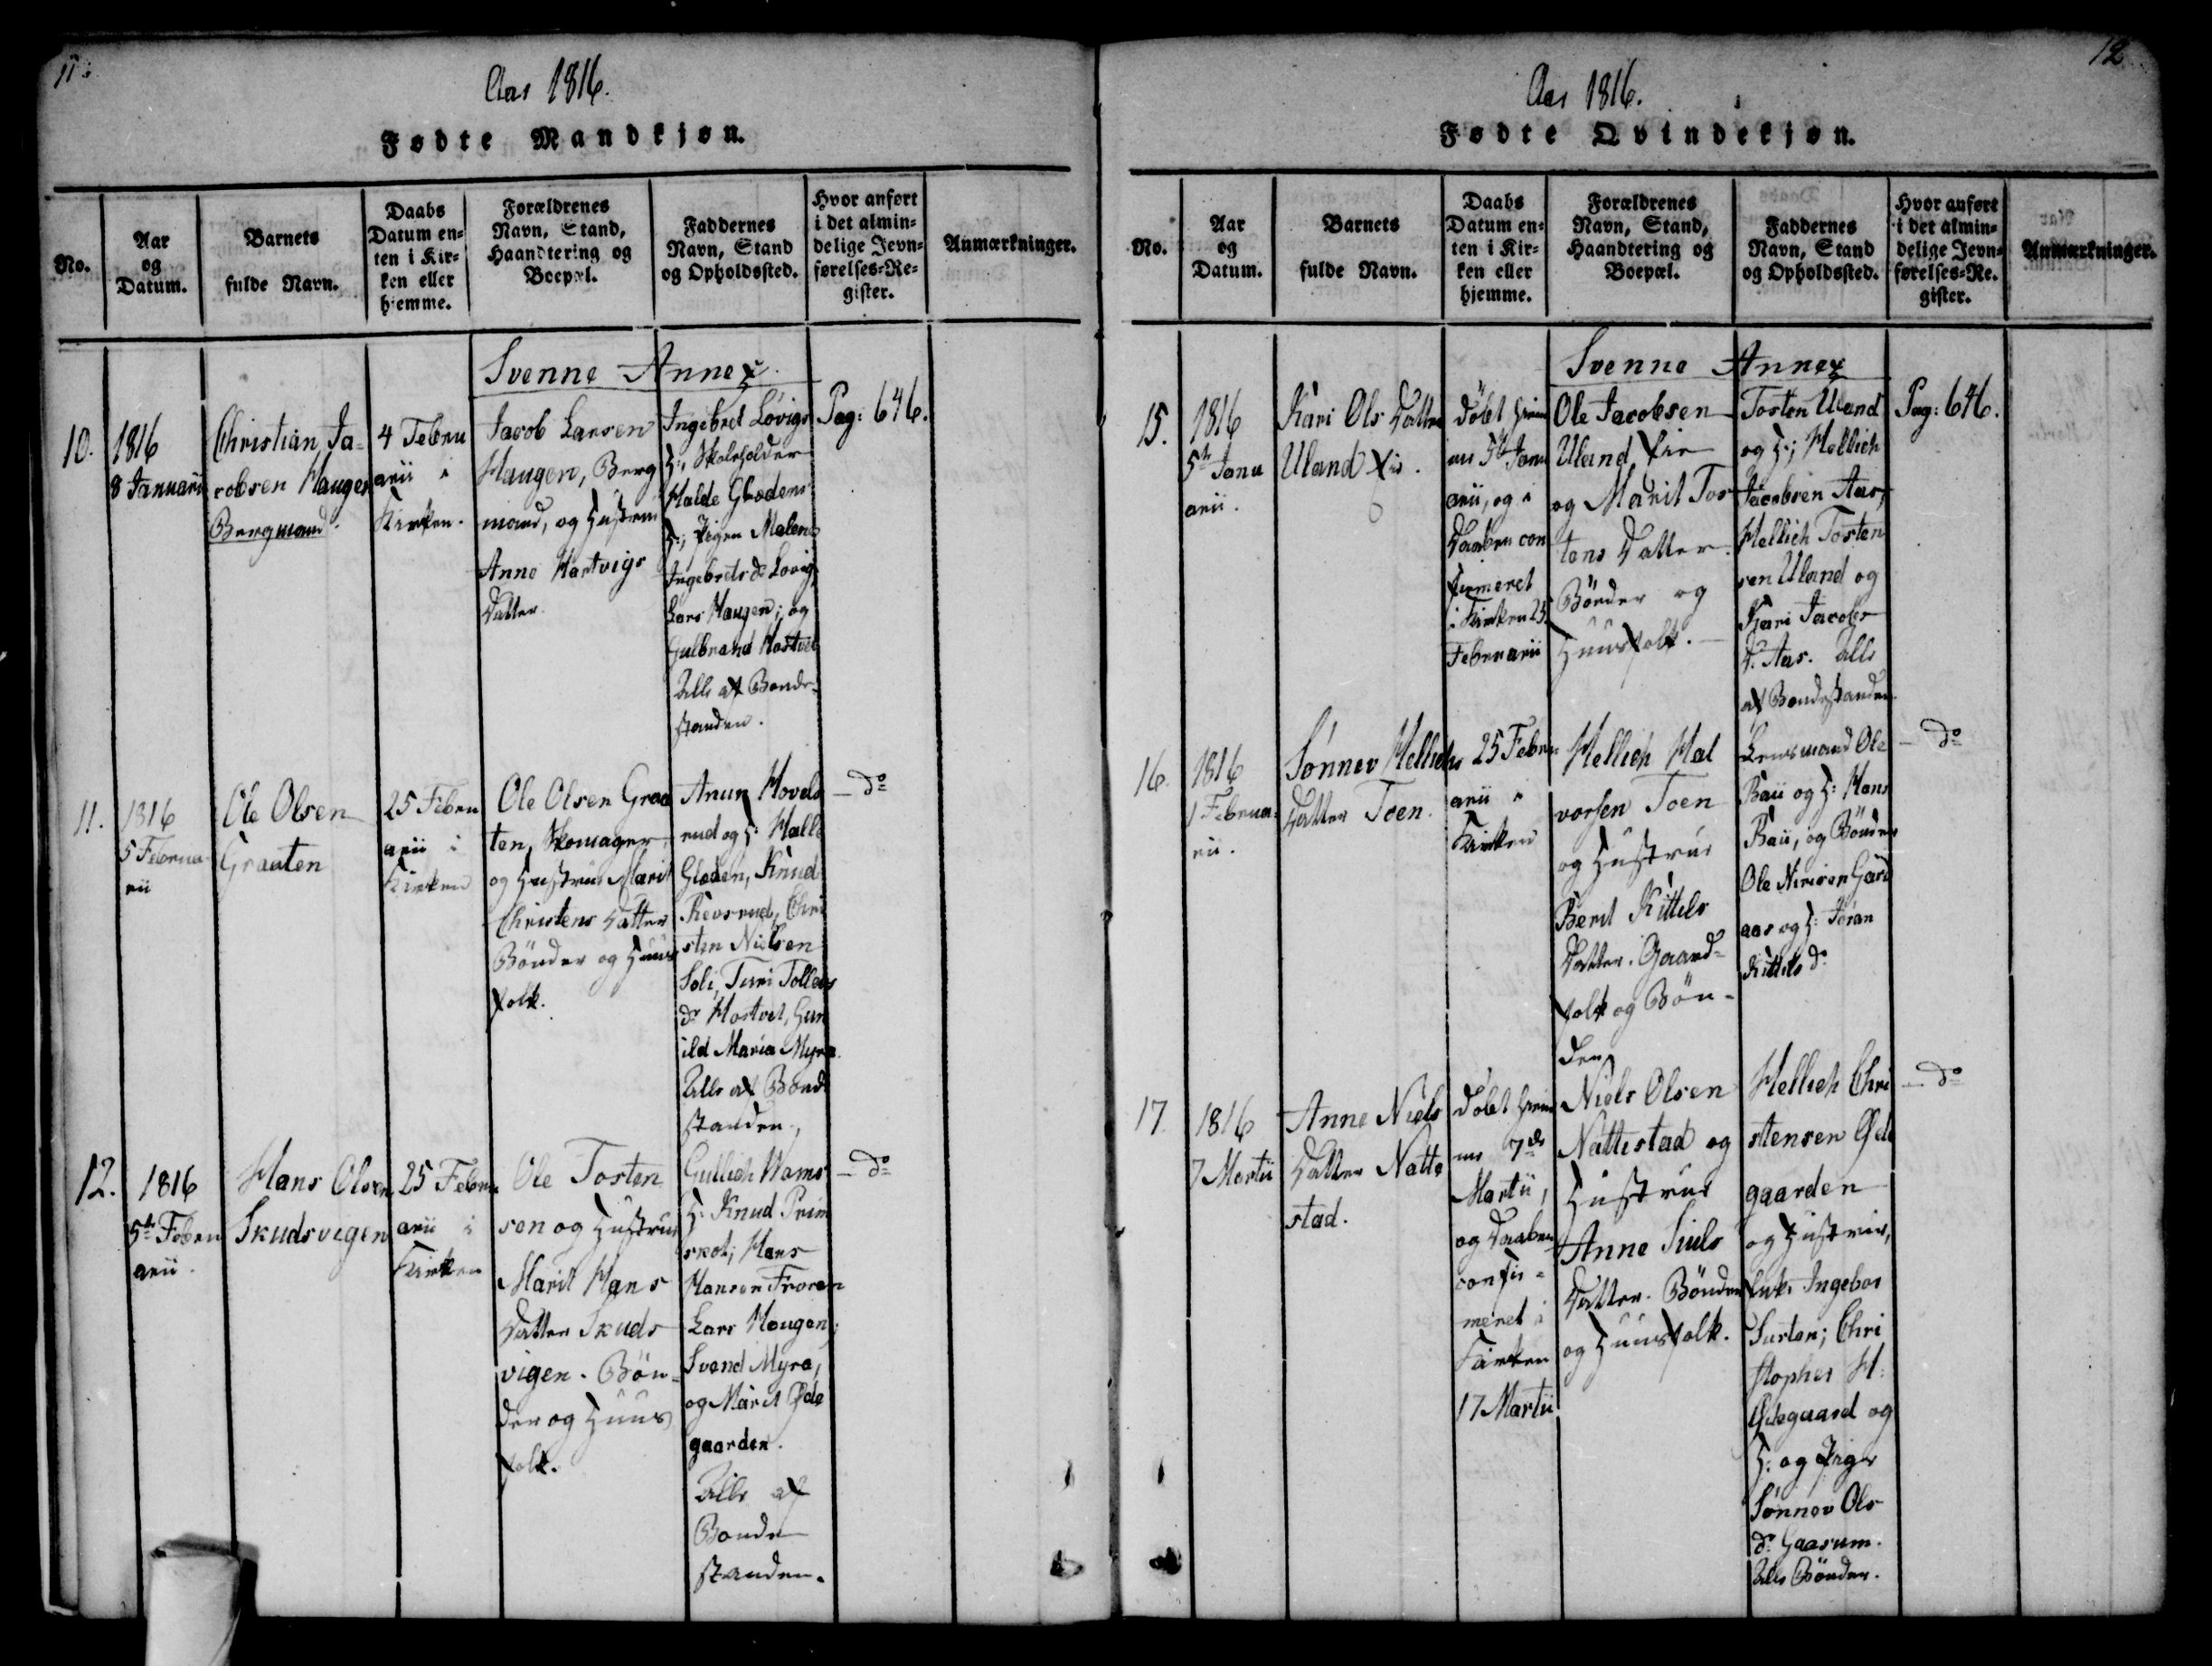 11.
Aar 1816.
Fødte Mandkjøn.
No.
Aar
og
Datum.
Barnets
fulde Navn.
Daabs
Datum en-
ten i Kir-
ken eller
hjemme.
Forældrenes
Navn, Stand,
Haandtering og
Boepæl.
Faddernes
Navn, Stand
og Opholdssted.
Hvor anført
i det almin-
delige Jevn-
førelses-Re-
gister.
Anmærkninger.
Svenne Annex.
10.
1816
8 Januarii
Christian Ja-
cobsen Haugen
Bergmand.
4 Febru
arii i
Kirken.
Jacob Larsen
Haugen, Berg
mand, og Hustrue
Anne Hartvigs
Datter
Ingebret Løvigs
H:, Skoleholder
Halde Glædens
H:, Pigen Malene
Ingebrets d. Løvig,
Lars Haugen; og
Gulbrand Hostvet
Alle af Bonde-
standen.
Pag: 646.
11.
1816
5 Februa
rii
Ole Olsen
Graaten
25 Febru
arii i
Kirken
Ole Olsen Graa
ten, Skomager,
og Hustrue Marit
Christens Datter
Bønder og Huus
folk.
Anun Hovels
rud og H: Halle
Glæden, Knud
Revsrud, Chri
sten Nielsen
Soli, Turi Tollevs
d. Hostvet, Gun
ild Maria Myra.
Alle af Bonde
standen.
— do
12.
1816
5te Febru
arii.
Hans Olsen
Skudsvigen
25 Febru
arii i
Kirken
Ole Tosten
sen og Hustrue
Marit Hans
Datter Skuds
vigen. Bøn-
der og Huus
folk.
Gullich Wams
H: Knud Prim
skot; Hans
Hansen Froren
Lars Haugen;
Svend Myra,
og Marit Øde
gaarden.
Alle af
Bonde
standen.
— do
12
Aar 1816.
Fødte Qvindekjøn.
No.
Aar
og
Datum.
Barnets
fulde Navn.
Daabs
Datum en-
ten i Kir-
ken eller
hjemme.
Forældrenes
Navn, Stand,
Haandtering og
Boepæl.
Faddernes
Navn, Stand
og Opholdssted.
Hvor anført
i det almin-
delige Jevn-
førelses-Re-
gister.
Anmærkninger.
Svenne Annex
15.
1816
5te Janu
arii.
Kari Ols Datter
Uland
Døbt hjem
me 5te Janu
arii, og i
Daaben con
firmeret
i Kirken 25
Februarii
Ole Jacobsen
Uland
og Marit Tos
tens Datter.
Bønder og
Huusfolk.
Tosten Uland
og H:; Hellich
Jacobsen Aas,
Hellich Tosten
sen Uland og
Kari Jacobs
D. Aas. Alle
af Bondestanden.
Pag: 646.
16.
1816
1 Februa
rii.
Sønnev Hellichs
Datter Toen.
25 Febru
arii i
Kirken
Hellich Hal
vorsen Toen
og Hustrue
Berit Kittels
Datter. Gaard-
folk og Bøn-
der
Lensmand Ole
Baii og H: Hans
Baii, og Bønder
Ole Nirisen Gaard
aas og H: Jøran
Kittels d.
— do
17.
1816
7 Martii
Anne Niels
Datter Natte
stad.
Døbt hjem
me 7de
Martii,
og Daaben
confir-
meret i
Kirken
17 Martii
Niels Olsen
Nattestad og
Hustrue
Anne Siuls
Datter. Bønder
og Huusfolk.
Hellich Chri
stensen Øde
gaarden
og Hustrue,
Enke Ingebor
Surten; Chri
stopher H:
Ødegaard og
H: og Pige
Sønnov Ols
d. Gaasum.
Alle Bønder.
— do